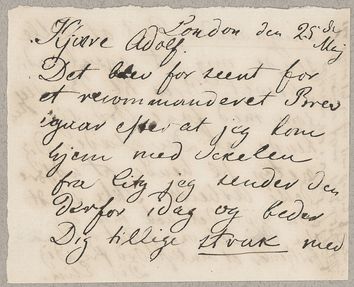 London den 25de Maj
Kjære Adolf.
Det blev for seent for
et recommanderet Brev
igaar efter at jeg kom
hjem med Vexelen
fra City jeg sender den
derfor idag og beder
Dig tillige strax med